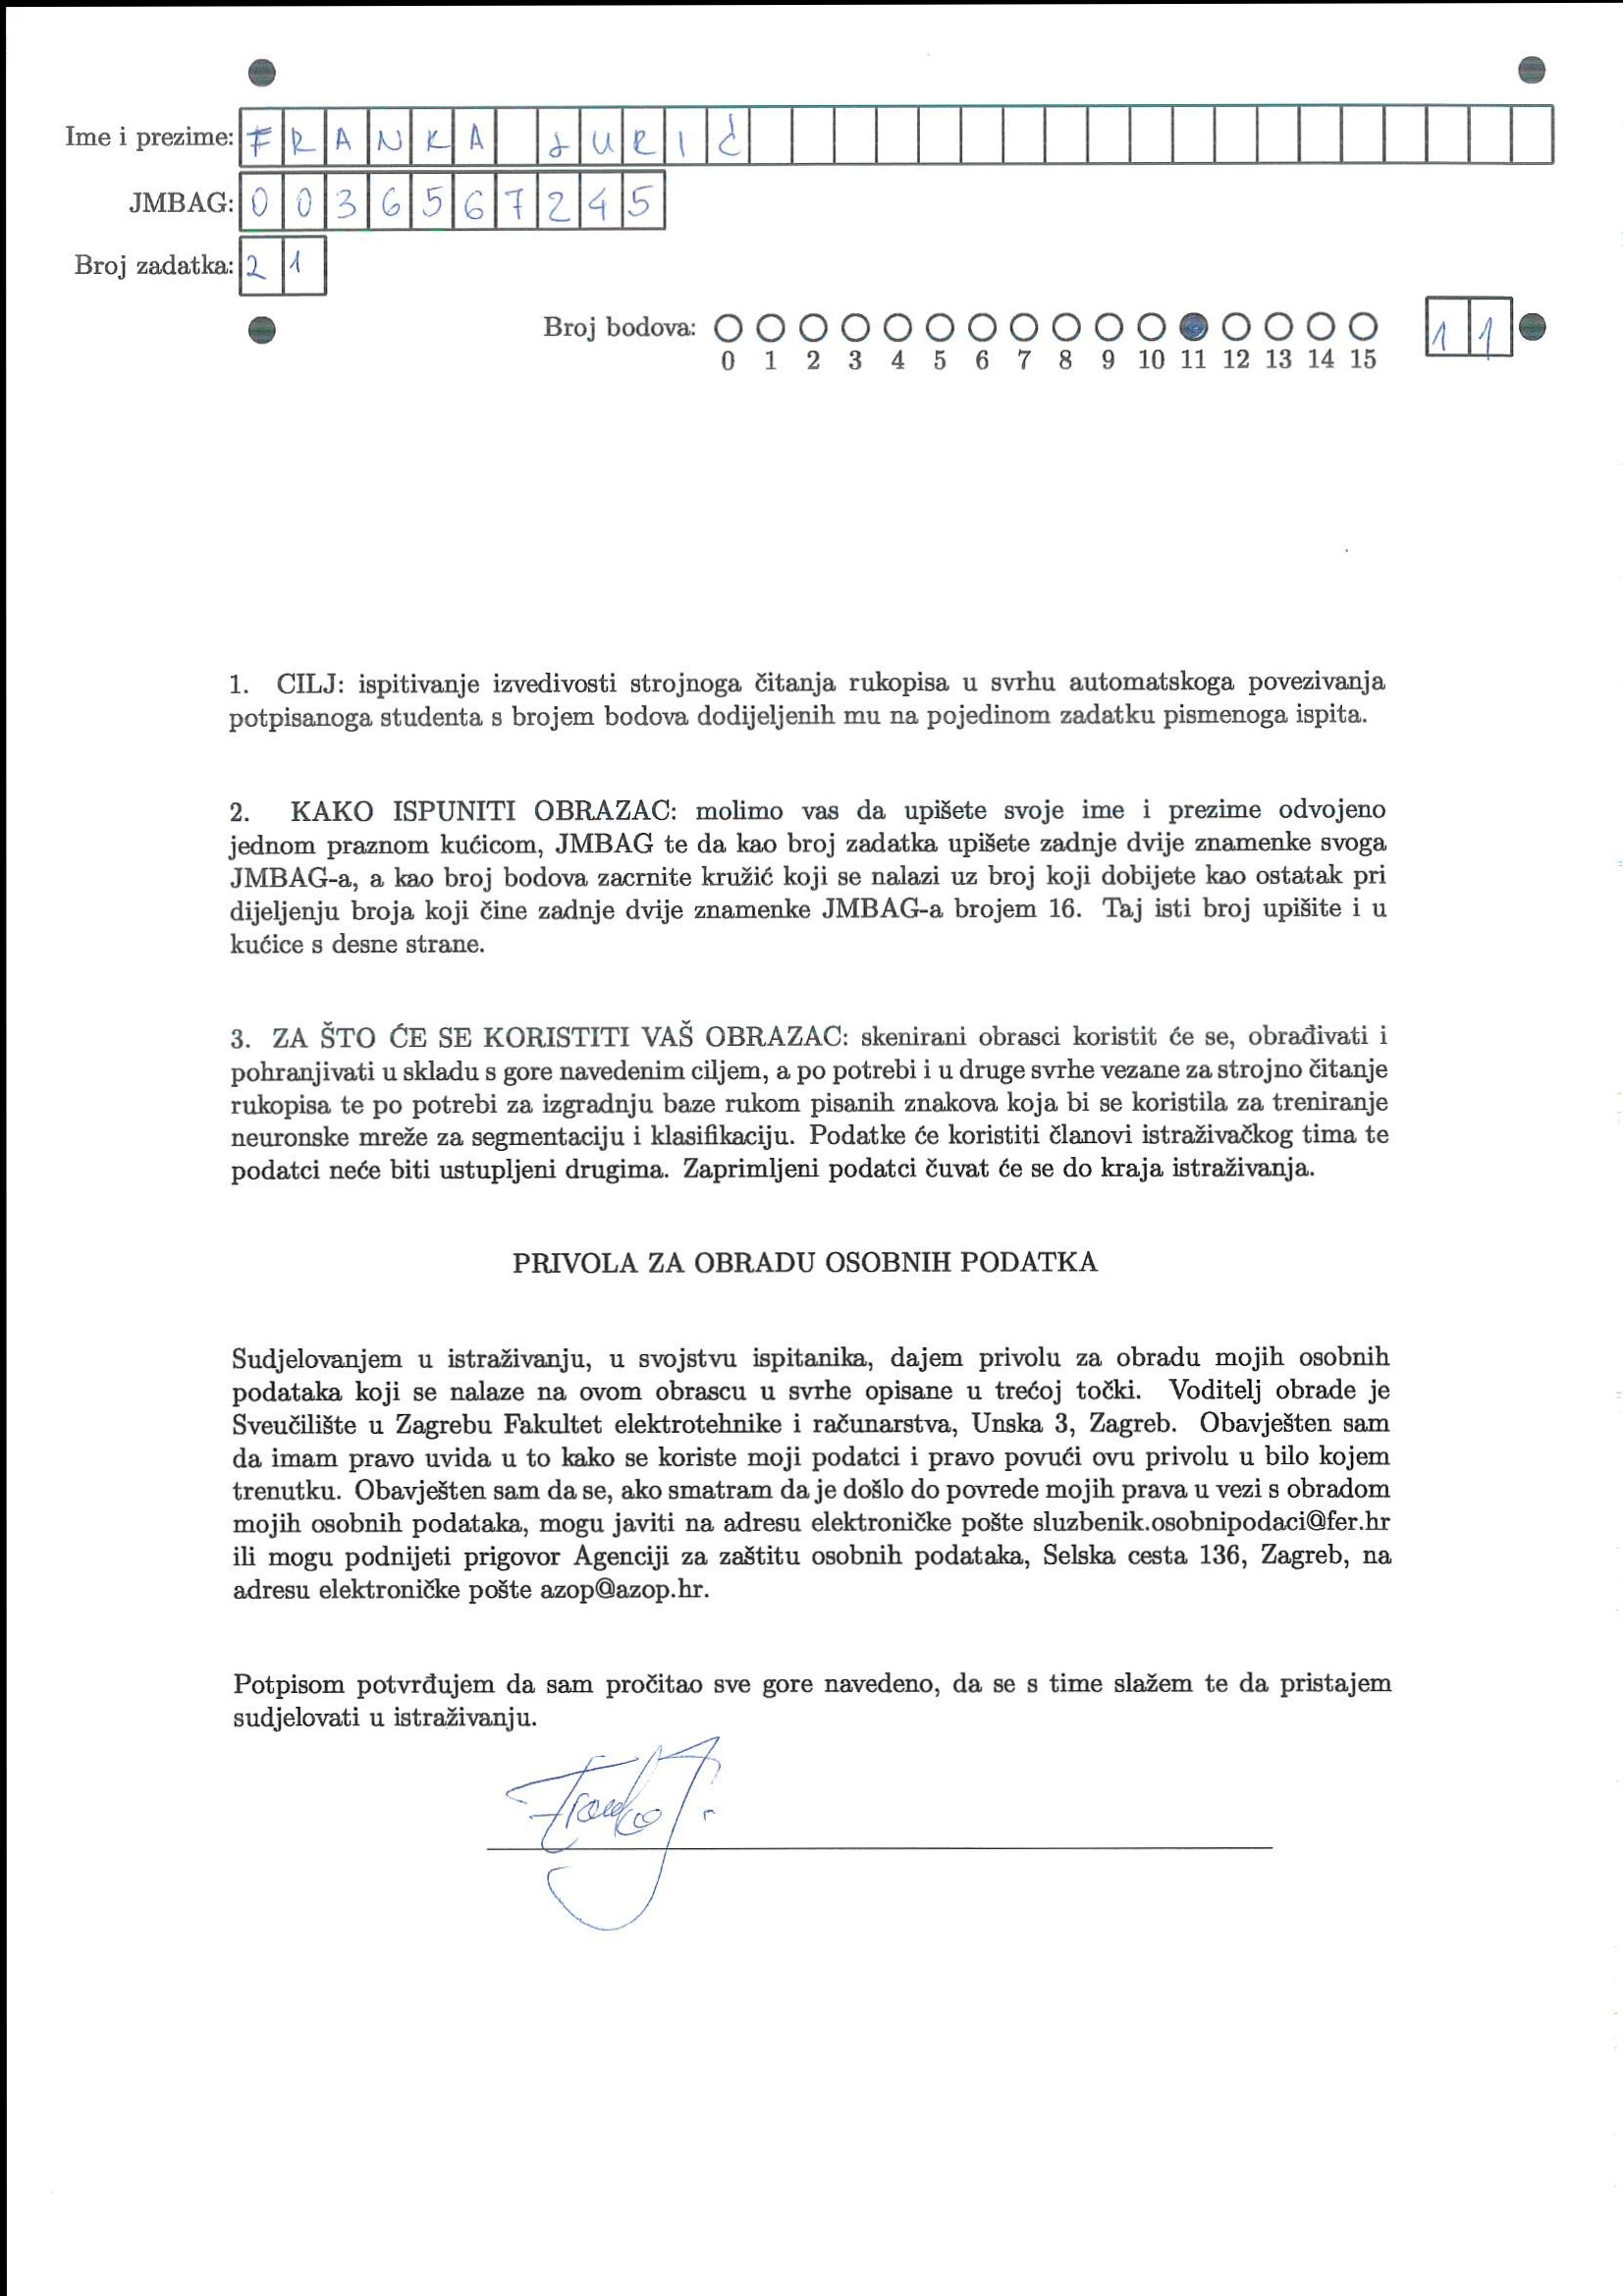 Ime i prezime: FRANKA JURIĆ
JMBAG: 0036567245
Broj zadatka: 21
Broj bodova: 11
0 1 2 3 4 5 6 7 8 9 10 11 12 13 14 15
1. CILJ: ispitivanje izvedivosti strojnoga čitanja rukopisa u svrhu automatskoga povezivanja
potpisanoga studenta s brojem bodova dodijeljenih mu na pojedinom zadatku pismenoga ispita.
2. KAKO ISPUNITI OBRAZAC: molimo vas da upišete svoje ime i prezime odvojeno
jednom praznom kućicom, JMBAG te da kao broj zadatka upišete zadnje dvije znamenke svoga
JMBAG-a, a kao broj bodova zacrnite kružić koji se nalazi uz broj koji dobijete kao ostatak pri
dijeljenju broja koji čine zadnje dvije znamenke JMBAG-a brojem 16. Taj isti broj upišite i u
kućice s desne strane.
3. ZA ŠTO ĆE SE KORISTITI VAŠ OBRAZAC: skenirani obrasci koristit će se, obrađivati i
pohranjivati u skladu s gore navedenim ciljem, a po potrebi i u druge svrhe vezane za strojno čitanje
rukopisa te po potrebi za izgradnju baze rukom pisanih znakova koja bi se koristila za treniranje
neuronske mreže za segmentaciju i klasifikaciju. Podatke će koristiti članovi istraživačkog tima te
podatci neće biti ustupljeni drugima. Zaprimljeni podatci čuvat će se do kraja istraživanja.
PRIVOLA ZA OBRADU OSOBNIH PODATKA
Sudjelovanjem u istraživanju, u svojstvu ispitanika, dajem privolu za obradu mojih osobnih
podataka koji se nalaze na ovom obrascu u svrhe opisane u trećoj točki. Voditelj obrade je
Sveučilište u Zagrebu Fakultet elektrotehnike i računarstva, Unska 3, Zagreb. Obavješten sam
da imam pravo uvida u to kako se koriste moji podatci i pravo povući ovu privolu u bilo kojem
trenutku. Obavješten sam da se, ako smatram da je došlo do povrede mojih prava u vezi s obradom
mojih osobnih podataka, mogu javiti na adresu elektroničke pošte sluzbenik.osobnipodaci@fer.hr
ili mogu podnijeti prigovor Agenciji za zaštitu osobnih podataka, Selska cesta 136, Zagreb, na
adresu elektroničke pošte azop@azop.hr.
Potpisom potvrđujem da sam pročitao sve gore navedeno, da se s time slažem te da pristajem
sudjelovati u istraživanju.